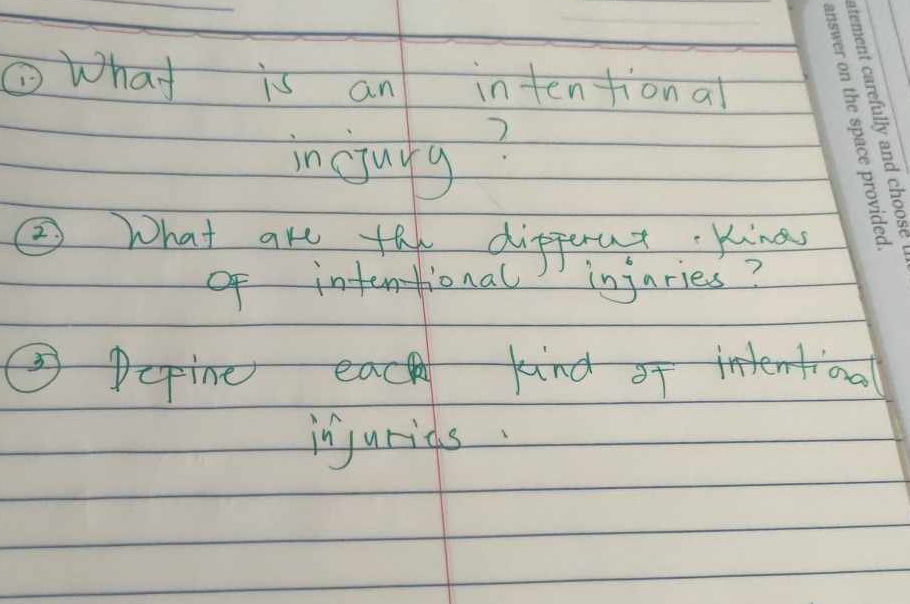 1. What is an intentional
injury?
2. What are the different kinds
of intentional injuries?
3 Define each kind of intentional
injuries.
atement carefully and choose
answer on the space provided.